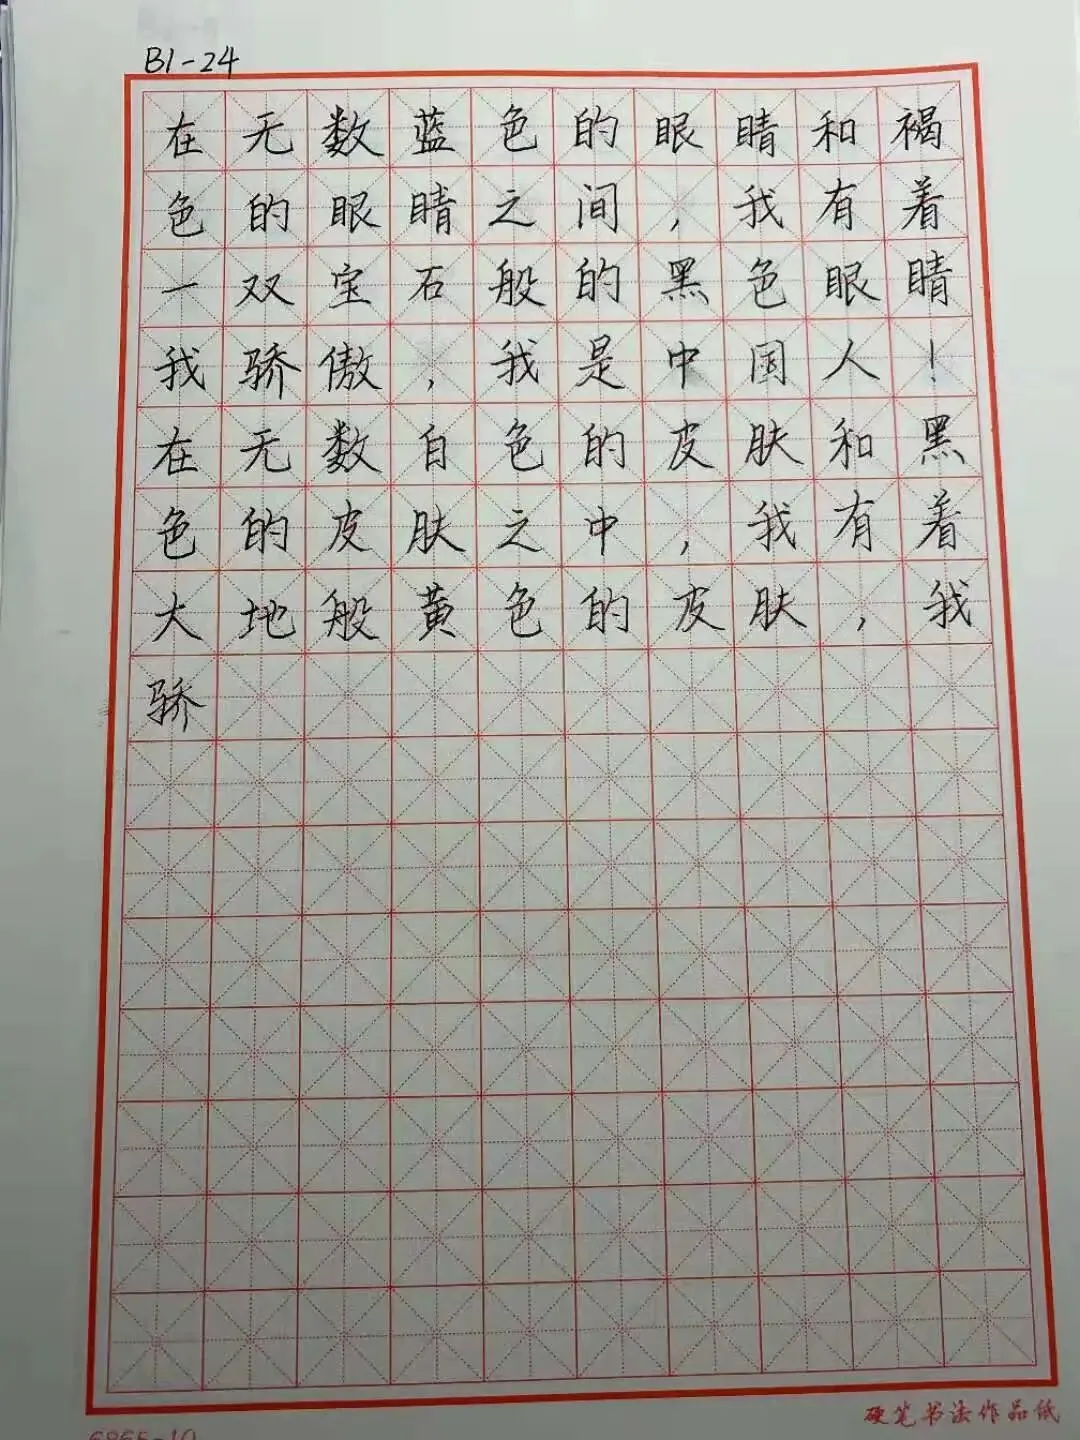 B1-24
在无数蓝色的眼睛和褐
色的眼睛之间，我有着
一双宝石般的黑色眼睛
我骄傲，我是中国人！
在无数白色的皮肤和黑
色的皮肤之中，我有着
大地般黄色的皮肤，我
骄
硬笔书法作品纸